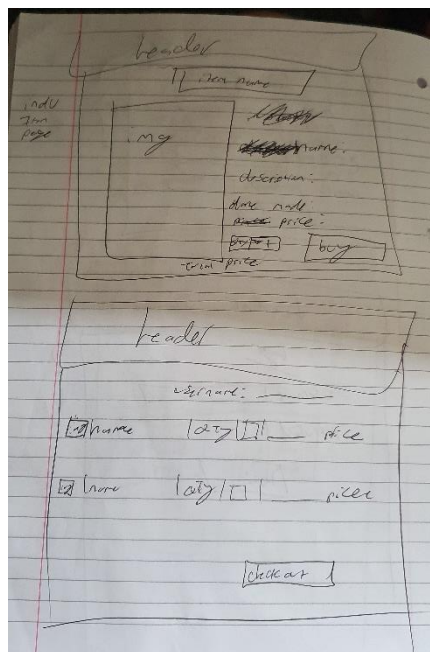 header
item name
indv
item
page
img
name:
description:
date made:
price:
buy
price
header
username:
name qty price
name qty price
check out